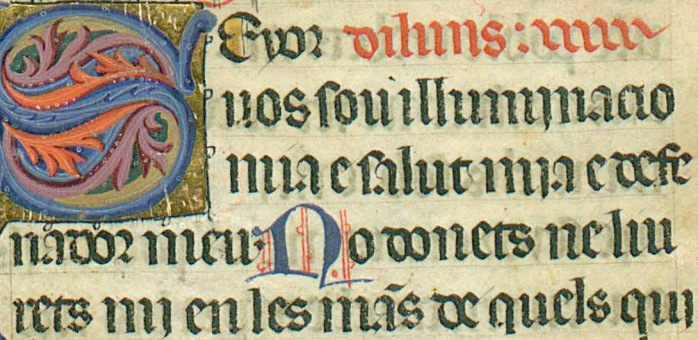 SEyor diluns:
uos sou illuminacio
mia e salut mia e defe
nador meu. No donets ne liu
rets mi en les mãs de quels qui